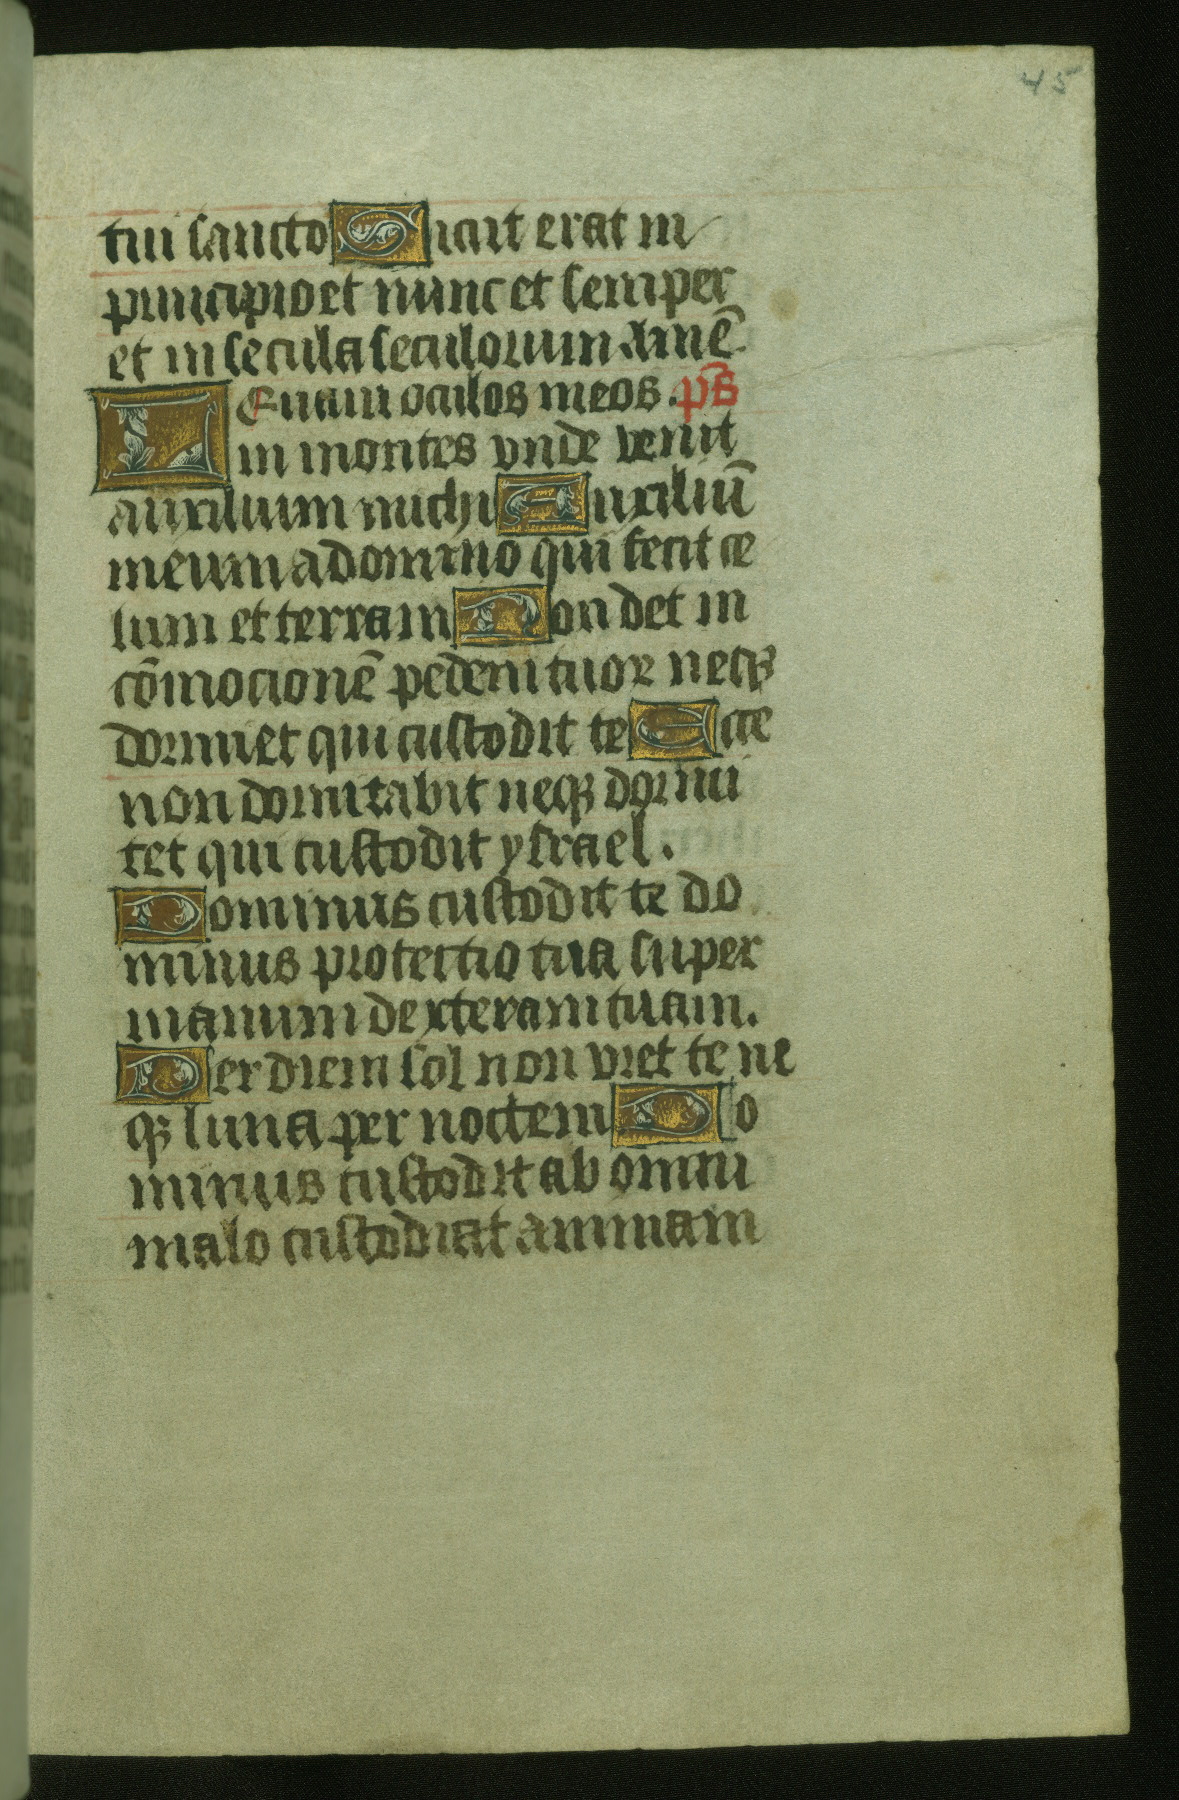 45
tui sancto Sicut erat in
principio et nunc et semper
et in secula seculorum Amē.
Leuaui oculos meos. ps̄
in montes vnde venit
auxilium michi Auxiliū
meum a domino qui fecit ce
lum et terram Non det in
cōmocionē pedem tuor neqꝫ
dormiet qui custodit te Ecce
non dormitabit neqꝫ dormi
tet qui custodit ysrael.
Dominus custodit te do
minus protectio tua super
manum dexteram tuam.
Per diem sol non vret te ne
qꝫ luna per noctem Do
minus custodit ab omni
malo custodiat animam